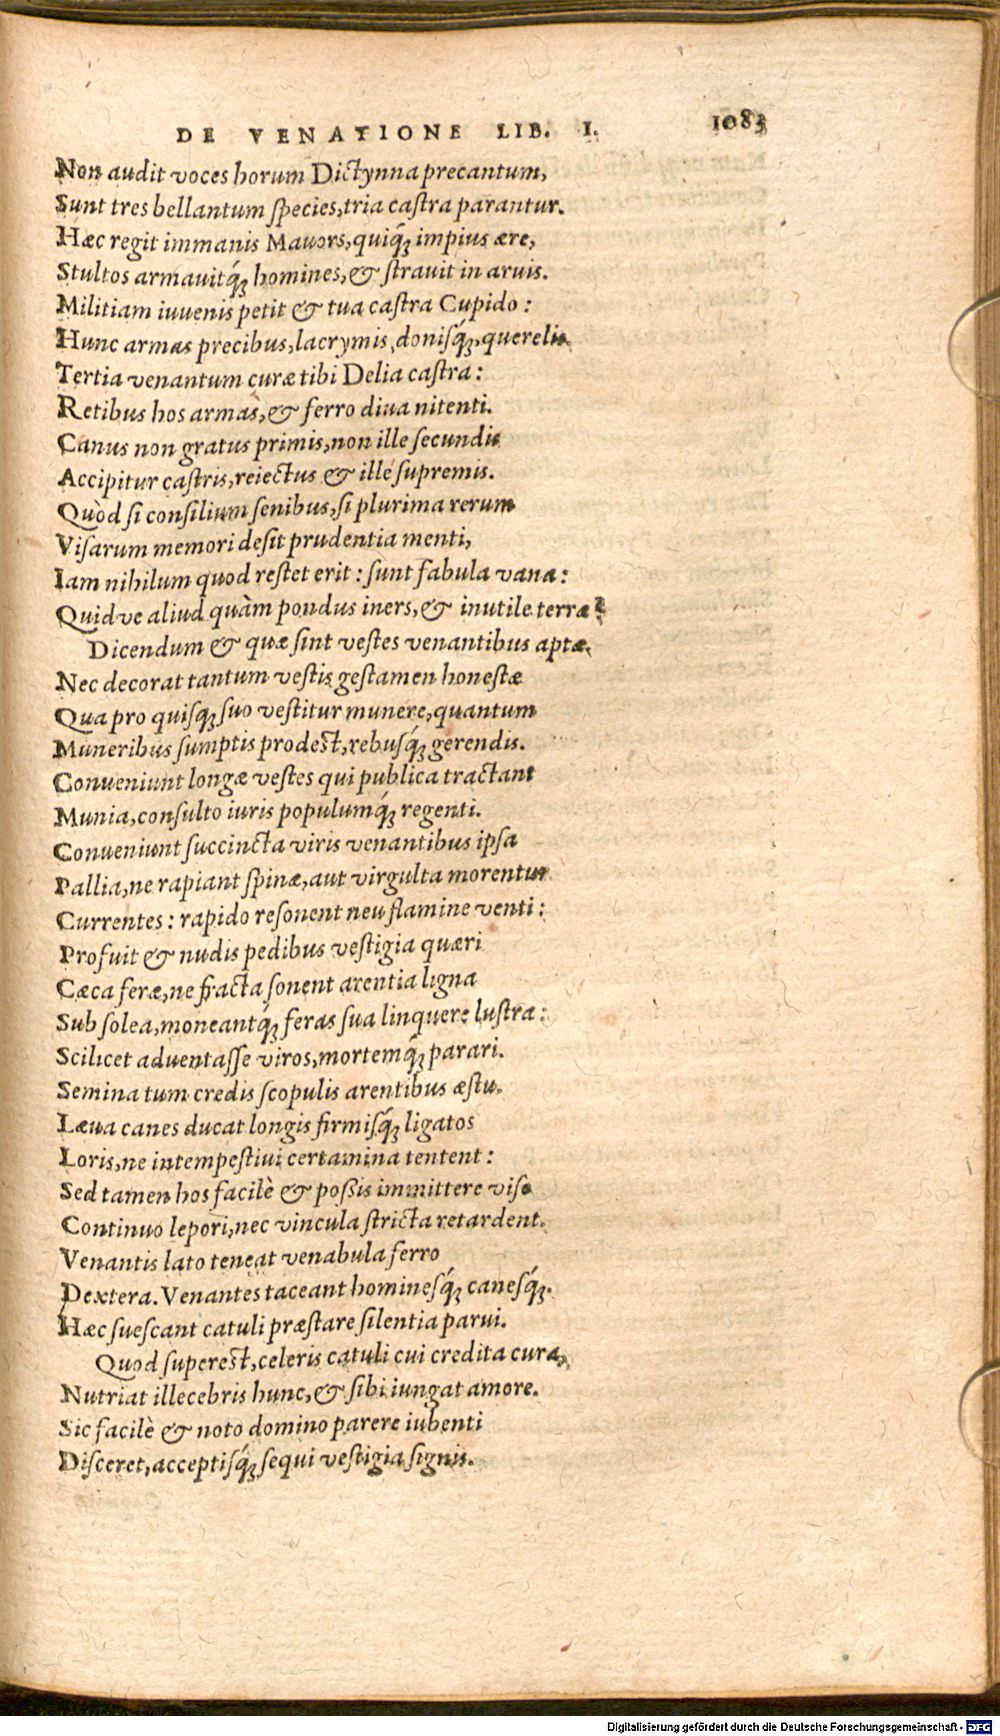 DE VENATIONE LIB. I. 1083
Non audit voces horum Dictynna precantum,
Sunt tres bellantum ſpecies, tria caſtra parantur.
Hæc regit immanis Mavors, quiq́; impius ære,
Stultos armavitq́; homines, & ſtravit in arvis.
Militiam iuvenis petit & tua caſtra Cupido:
Hunc armas precibus, lacrymis, doniſq́;, querelis.
Tertia venantum curæ tibi Delia caſtra:
Retibus hos armas, & ferro diua nitenti.
Canus non gratus primis, non ille ſecundis
Accipitur caſtris, reiectus & ille ſupremis.
Quòd ſi conſilium ſenibus, ſi plurima rerum
Viſarum memori deſit prudentia menti,
Iam nihilum quod reſtet erit: ſunt fabula vana:
Quidve aliud quàm pondus iners, & inutile terræ?
Dicendum & quæ ſint veſtes venantibus aptæ.
Nec decorat tantum veſtis geſtamen honeſtæ
Qua pro quiſq; ſuo veſtitur munere, quantum
Muneribus ſumptis prodeſt, rebuſq́; gerendis.
Conveniunt longæ veſtes qui publica tractant
Munia, conſulto iuris populumq́; regenti.
Conveniunt ſuccincta viris venantibus ipſa
Pallia, ne rapiant ſpinæ, aut virgulta morentur
Currentes: rapido reſonent neu flamine venti:
Profuit & nudis pedibus veſtigia quæri
Cæca feræ, ne fracta ſonent arentia ligna
Sub ſolea, moneantq́; feras ſua linquere luſtra:
Scilicet adventaſſe viros, mortemq́; parari.
Semina tum credis ſcopulis arentibus æſtu.
Læva canes ducat longis firmiſq́; ligatos
Loris, ne intempeſtivi certamina tentent:
Sed tamen hos facilè & poſsis immittere viſo
Continuo lepori, nec vincula ſtricta retardent.
Venantis lato teneat venabula ferro
Dextera. Venantes taceant homineſq́; caneſq́;.
Hæc ſueſcant catuli præſtare ſilentia parvi.
Quod ſupereſt, celeris catuli cui credita cura,
Nutriat illecebris hunc, & ſibi iungat amore.
Sic facilè & noto domino parere iubenti
Diſceret, acceptiſq́; ſequi veſtigia ſignis.
Digitalisierung gefördert durch die Deutsche Forschungsgemeinschaft - DFG